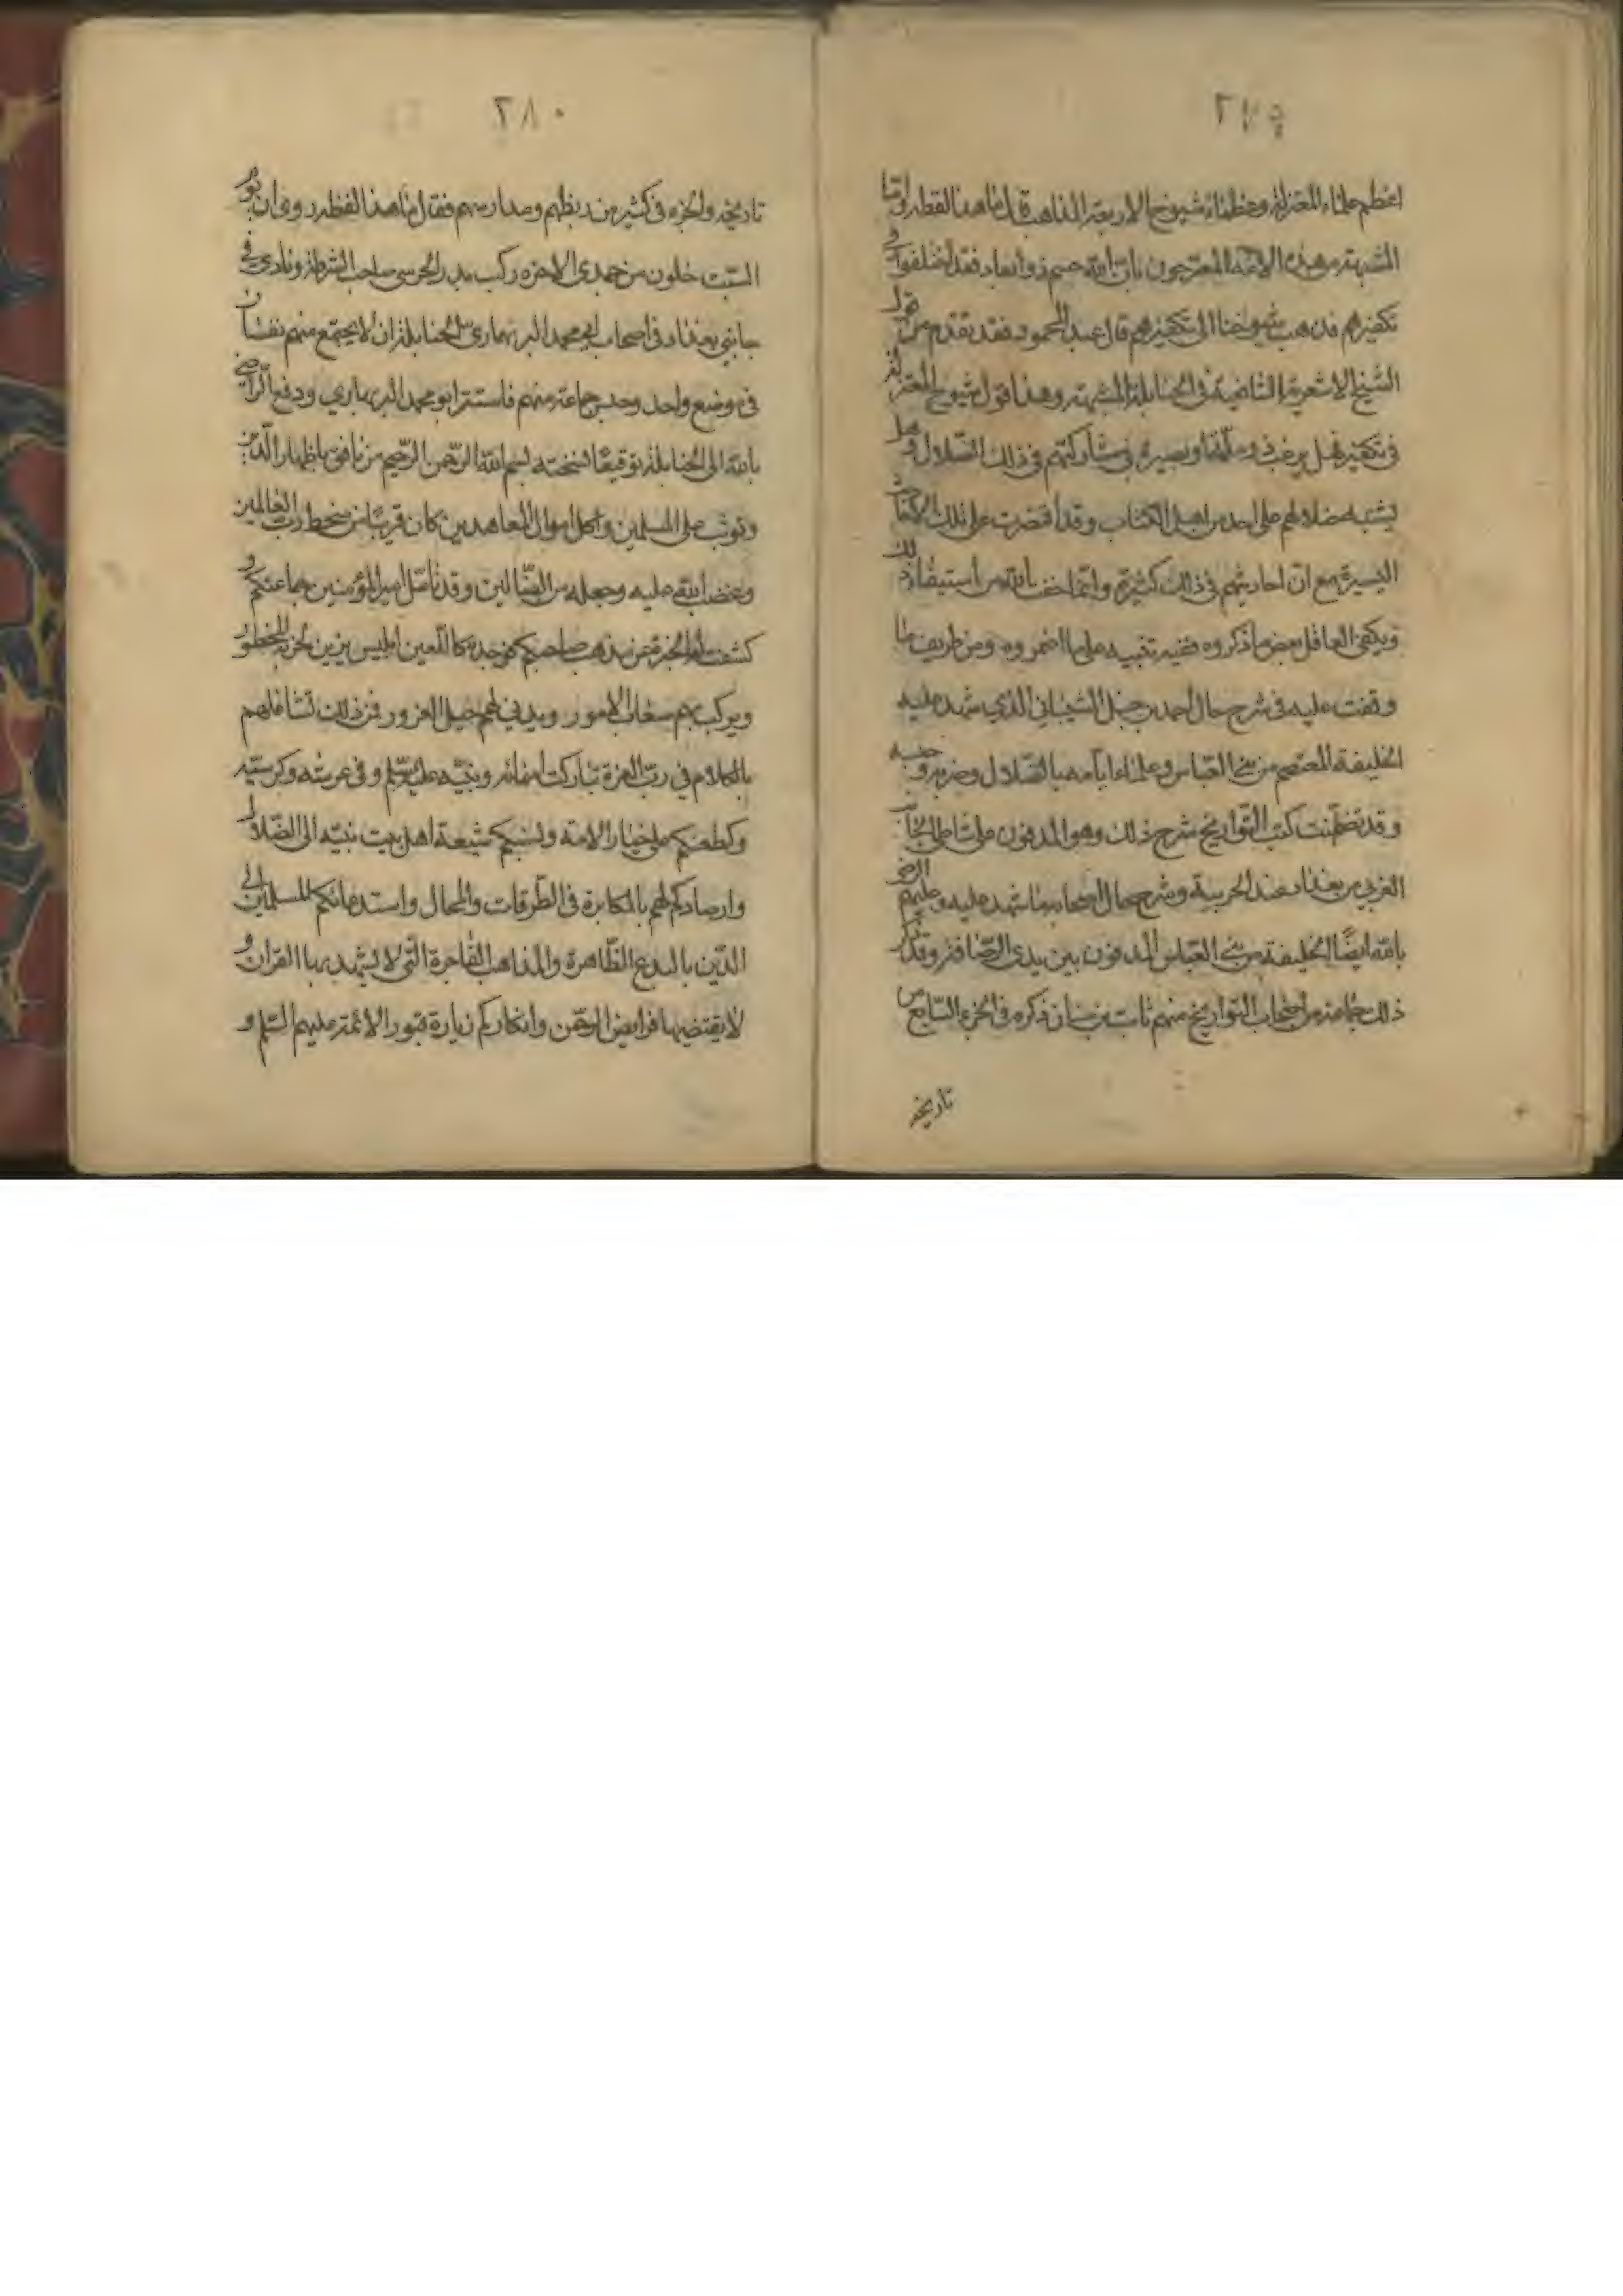 ٢٧٩
اعظم علماء المعتزلة وعظماء شيوخ الاربعة المذاهب قال ما هذا لفظه واما
المشبهة من هذه الامة المصرحون بان الله جسم ذو ابعاد فقد اختلفوا في
تكفيرهم فذهب شيوخنا الى تكفيرهم قال عبد المحمود فقد تقدم من قول
الشيخ الاشعرية الشافعية في الحنابلة المشبهة وهذا قول شيوخ المعتزلة
في تكفير فهل يرغب ذو وبصيرة في مشاركتهم في ذلك الضلال وهل
يشتبه ضلالهم على احد من اهل الكتاب وقد اقتصرت على تلك الاحاديث
اليسيرة مع ان احاديثهم في ذلك كثيرة وانما خفت بالله من استيفاء ذلك
ويكفي العاقل بعض ما ذكروه ففيه تنبيه على ما اضمروه ومن طريف ما
وقفت عليه في شرح حال احمد بن حنبل الشيباني الذي شهد عليه
الخليفة المعتصم من بني العباس وعلماء ايامه بالضلال وضربه وحبسه
وقد تضمنت كتب التواريخ شرح ذلك وهو المدفون على شاطي الجانب
الغربي من بغداد عند الحربية وشرح حال اصحابه ما شهد عليه وعليهم الراضي
بالله ايضًا الخليفة من بني العباس المدفون بين يدي الرصافة وقد ذكر
ذلك جماعة من اصحاب التواريخ منهم ثابت بن سنان ذكره في الجزء السابع من
تاريخه
٢٨٠
تاريخه والجزء في كثير من ربطهم ومدارسهم فقال ما هذا لفظه روى ان
الست خلون من جمدى الاخرة ركب بدر الخرسي صاحب الشرطة ونادى في
جانبي بغداد في اصحاب ابي محمد البربهاري الحنابلة ان لا يجتمع منهم نفسان
في موضع واحد وحبس جماعة منهم فاستتر ابو محمد البربهاري ودفع الراضي
بالله الى الحنابلة توقيعًا نسخته بسم الله الرحمن الرحيم من نافق باظهار الدين
وتوثب على المسلمين واكل اموال المعاهدين كان قريبًا من سخط رب العالمين
وغضب الله عليه وجعله من الضالين وقد تامل امير المؤمنين جماعتكم و
كشفت له الخبرة عن مذهب صاحبكم فوجده كاللعين ابليس يزين لحزبه المحظور
ويركب بهم صعاب الامور ويدني لهم حبل الغرور فمن ذلك تشاغلهم
بالكلام في رب العزة تباركت اسمائه وبنبيه عليه السلم وفي عرشه وكرسيه
وكطعنكم على خيار الامة ونسبكم شيعة اهل بيت نبيه الى الضلال
وارصادكم لهم بالمكابرة في الطرقات والمحال واستدعائكم للمسلمين الى
الدين بالبدع الظاهرة والمذاهب الفاجرة التي لا يشهد بها القران و
لا يقتضيها فرايض الرحمن وانكاركم زيارة قبور الائمة عليهم السلم و